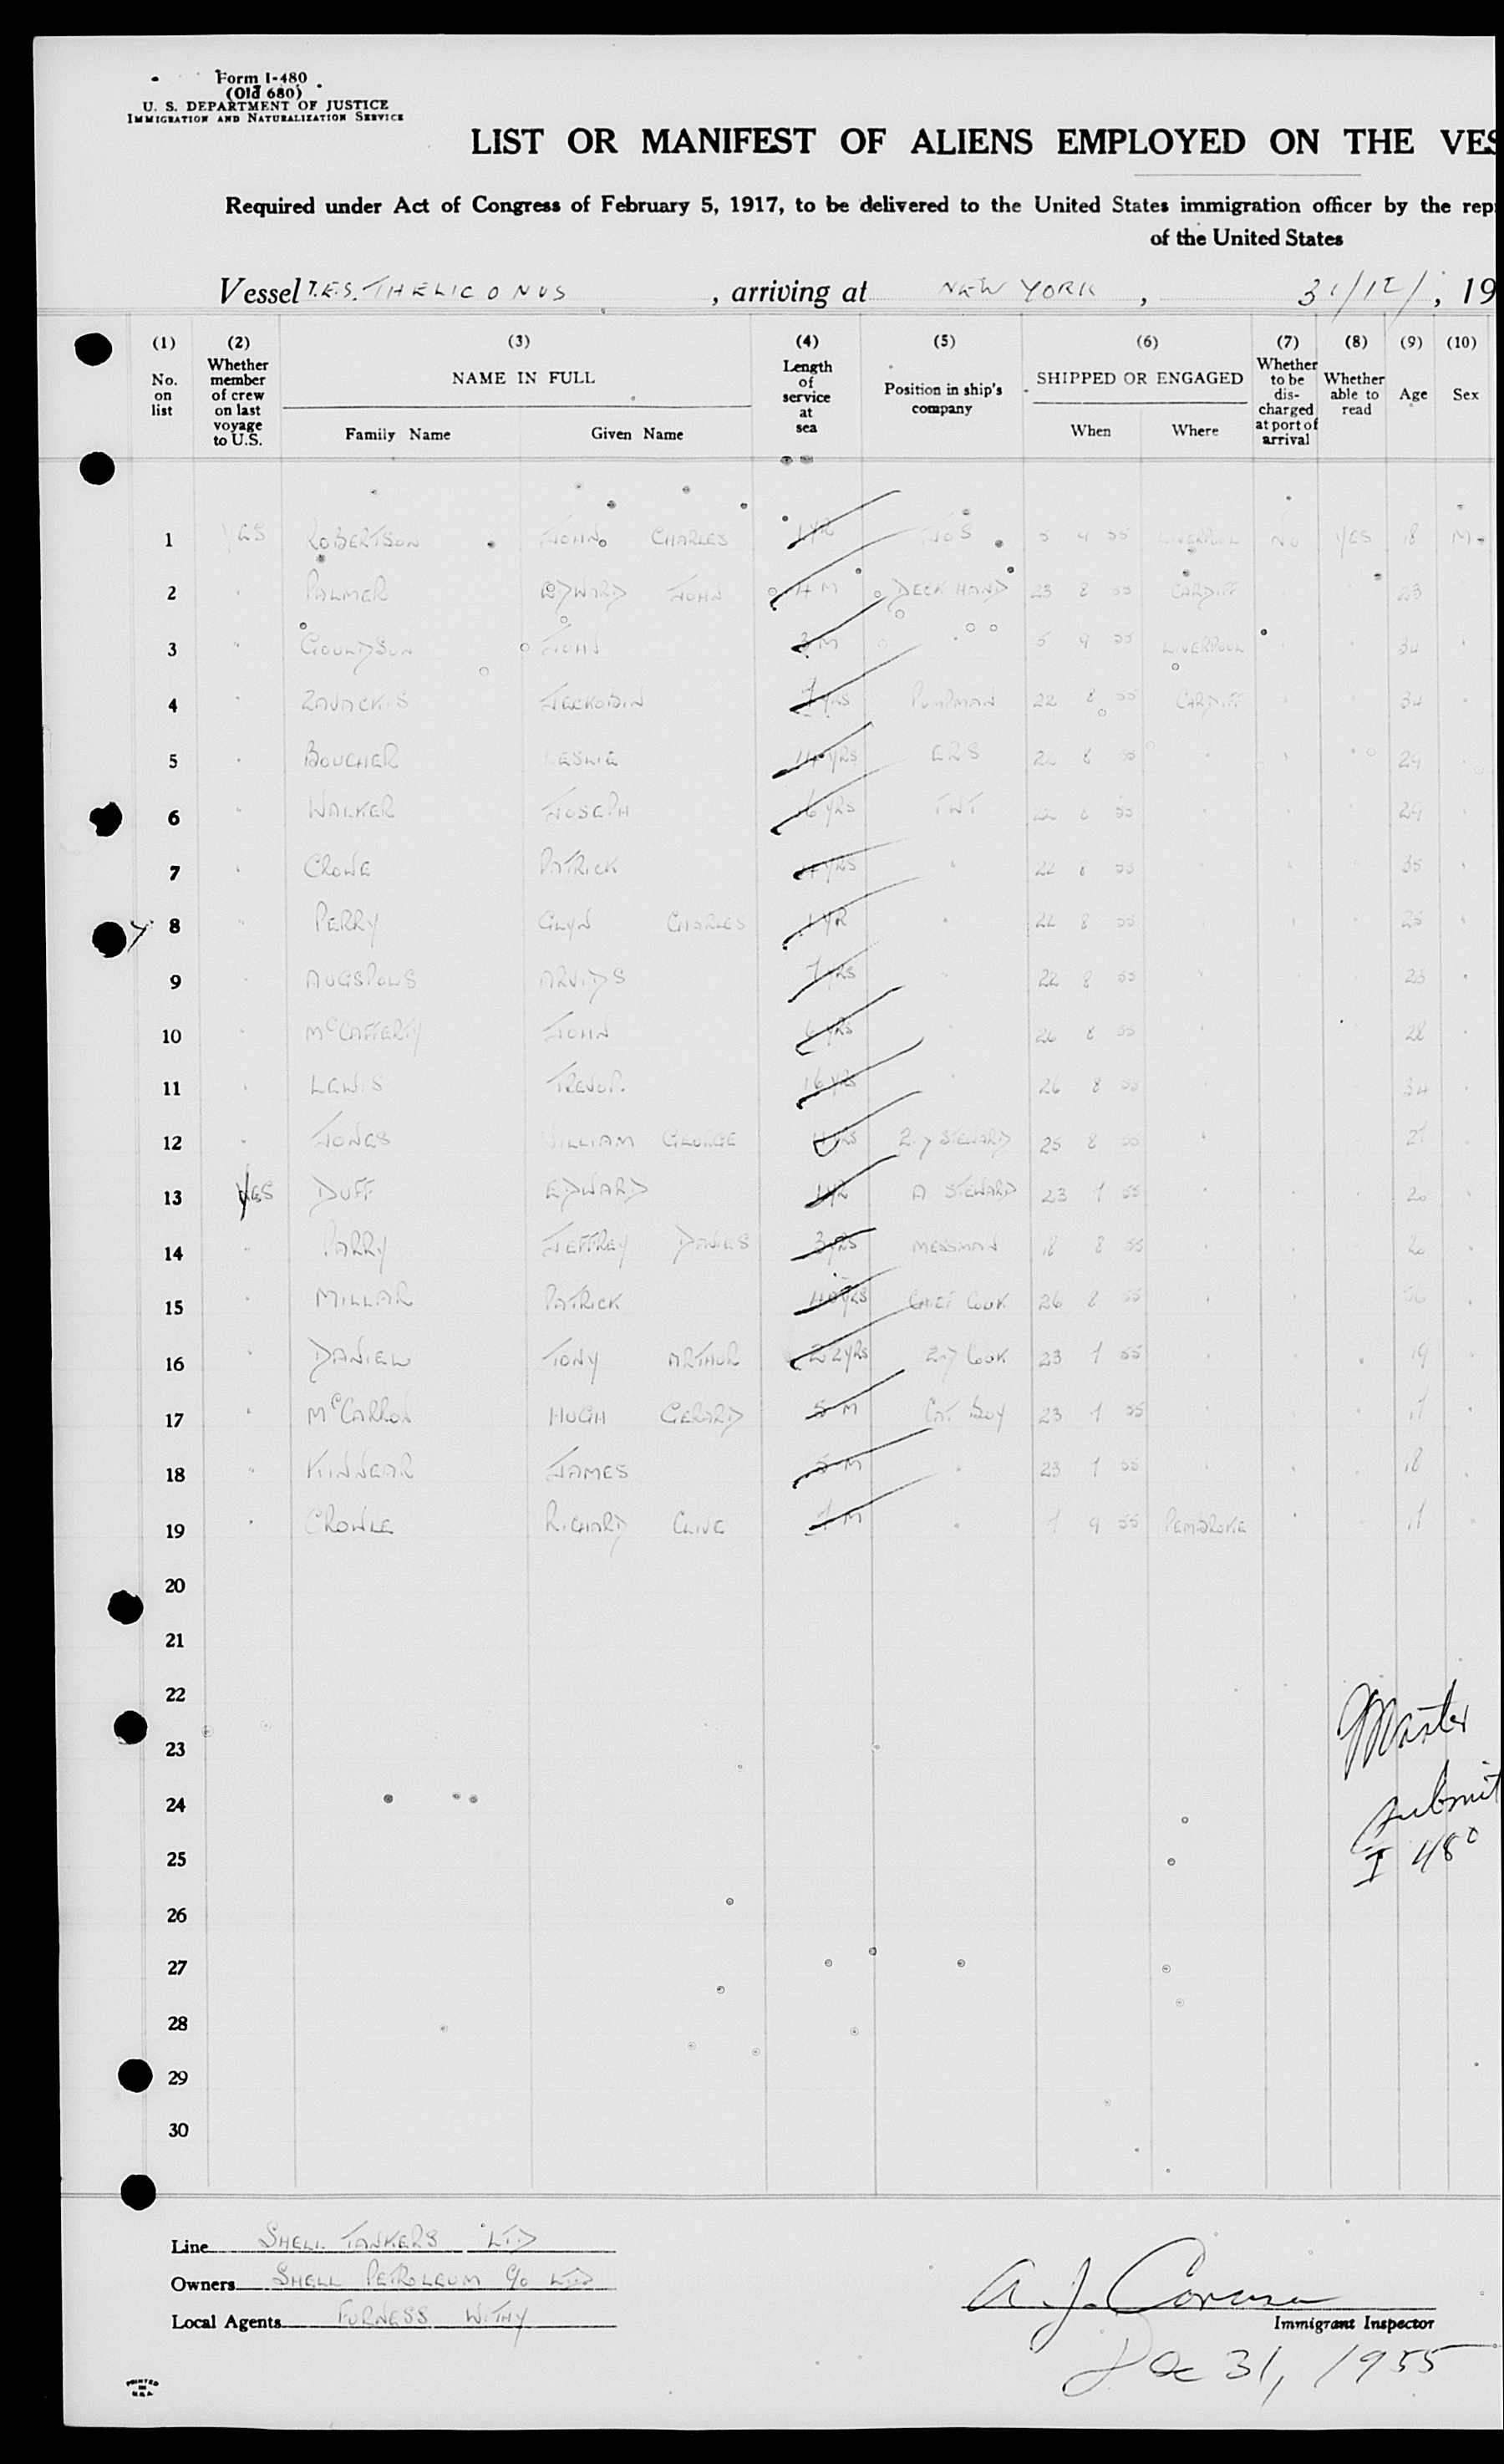 Form I-480
(Old 680)
U. S. DEPARTMENT OF JUSTICE
IMMIGRATION AND NATURALIZATION SERVICE
LIST OR MANIFEST OF ALIENS EMPLOYED ON THE VES
Required under Act of Congress of February 5, 1917, to be delivered to the United States immigration officer by the rep
of the United States
Vessel T.E.S. THELICONUS, arriving at NEW YORK, 31/12/, 19
(1) (2) (3) (4) (5) (6) (7) (8) (9) (10)
No. on list
Whether member of crew on last voyage to U.S.
NAME IN FULL
Family Name Given Name
Length of service at sea
Position in ship's company
SHIPPED OR ENGAGED
When Where
Whether to be discharged at port of arrival
Whether able to read
Age
Sex
1 YES ROBERTSON JOHN CHARLES 1 YR JOS 5 9 55 LIVERPOOL NO YES 18 M
2 " PALMER EDWARD JOHN 4 M DECK HAND 23 8 55 CARDIFF 23
3 " GOULDSON JOHN 3 M " 5 9 55 LIVERPOOL 34
4 " ZAVACKIS 7 YRS PUMPMAN 22 8 55 CARDIFF 34
5 " BOUCHER LESLIE YRS ERS 22 8 55 " 29
6 " WALKER JOSEPH 6 YRS 22 8 55 " 29
7 " CROWE PATRICK 4 YRS " 22 8 55 " 35
8 " PERRY GLYN CHARLES 1 YR " 22 8 55 " 25
9 " AUGSPOLS ARVIDS 7 YRS " 22 8 55 " 23
10 " McCAFFERTY JOHN 6 YRS " 26 8 55 " 28
11 " LEWIS TREVOR 16 YRS " 26 8 55 " 34
12 " JONES WILLIAM GEORGE YRS 2nd STEWARD 25 8 55 " 21
13 YES DUFF EDWARD 1 YR A STEWARD 23 55 " 20
14 " PARRY JEFFREY DAVIES 3 YRS MESSMAN 18 8 55 " 20
15 " MILLAR PATRICK YRS CHIEF COOK 26 8 55 "
16 " DANIEL TONY ARTHUR 2 YRS 2nd COOK 23 55 " 19
17 " McCARRON HUGH GERARD 5 M CAT BOY 23 55 "
18 " KINNEAR JAMES 5 M " 23 55 " 18
19 " CROWLE RICHARD CLIVE M " 9 55 PEMBROKE
20
21
22
23
24
25
26
27
28
29
30
Master
submit
I 480
Line SHELL TANKERS LTD
Owners SHELL PETROLEUM Co LTD
Local Agents FURNESS WITHY
A. J.
Immigrant Inspector
Dec 31, 1955
PRINTED
IN
U.S.A.